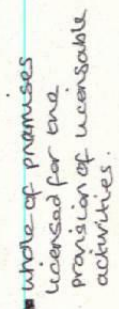 whole of premises
licensed for the
provision of licensable
activities.